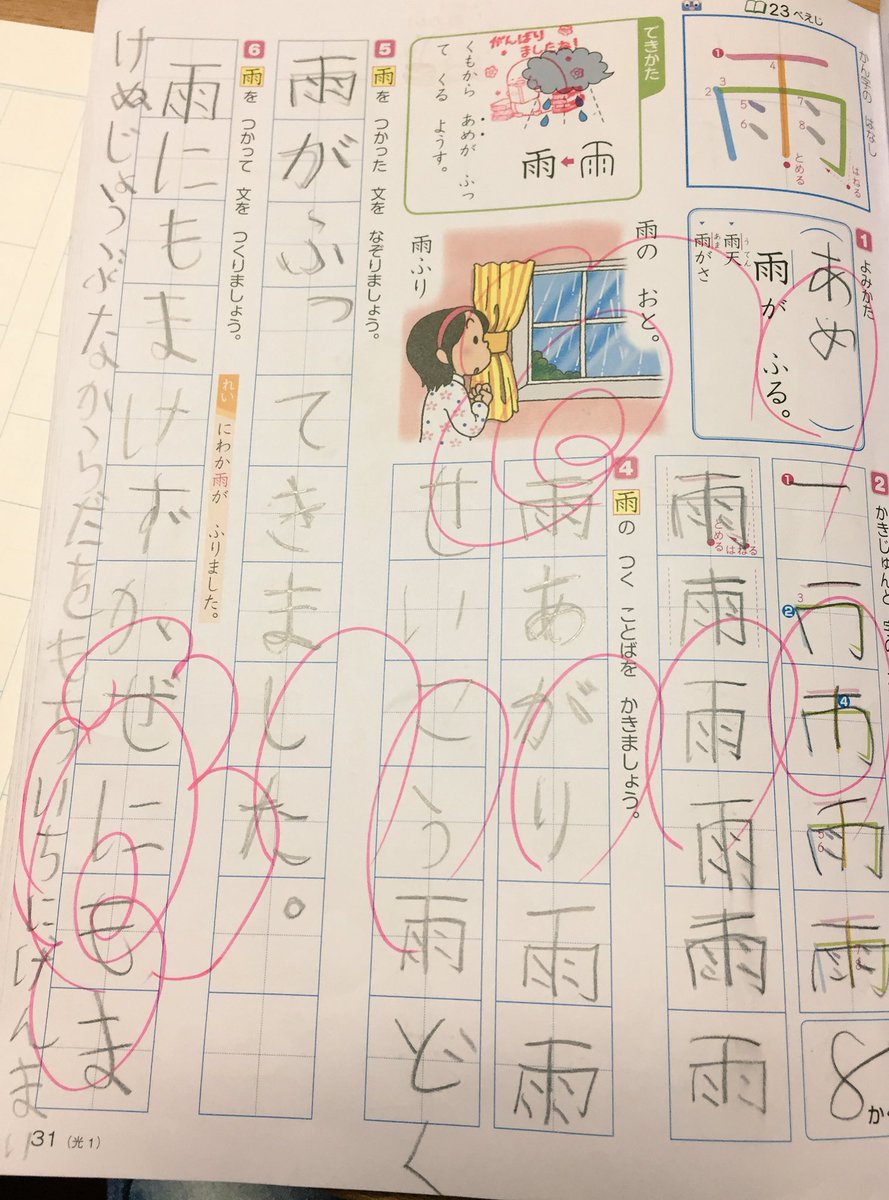 23 ぺえじ
かん字の はなし
雨
とめる
はねる
できかた
がんばりましたね!
くもから あめが ふっ
て くる ようす。
雨
1 よみかた
(あめ)
雨が ふる。
雨天
うてん
雨がさ
あま
雨の おと。
雨ふり
2 かきじゅんと
8 か
雨雨雨雨雨雨
とめる
はねる
4 雨の つく ことばを かきましょう。
雨あがり雨雨
せいこう雨どく
5 雨を つかった 文を なぞりましょう。
雨がふってきました。
6 雨を つかって 文を つくりましょう。
れい にわか雨が ふりました。
雨にもまけずかぜにもま
けぬじょうぶなからだをもち いちにげんまい
31 (光1)